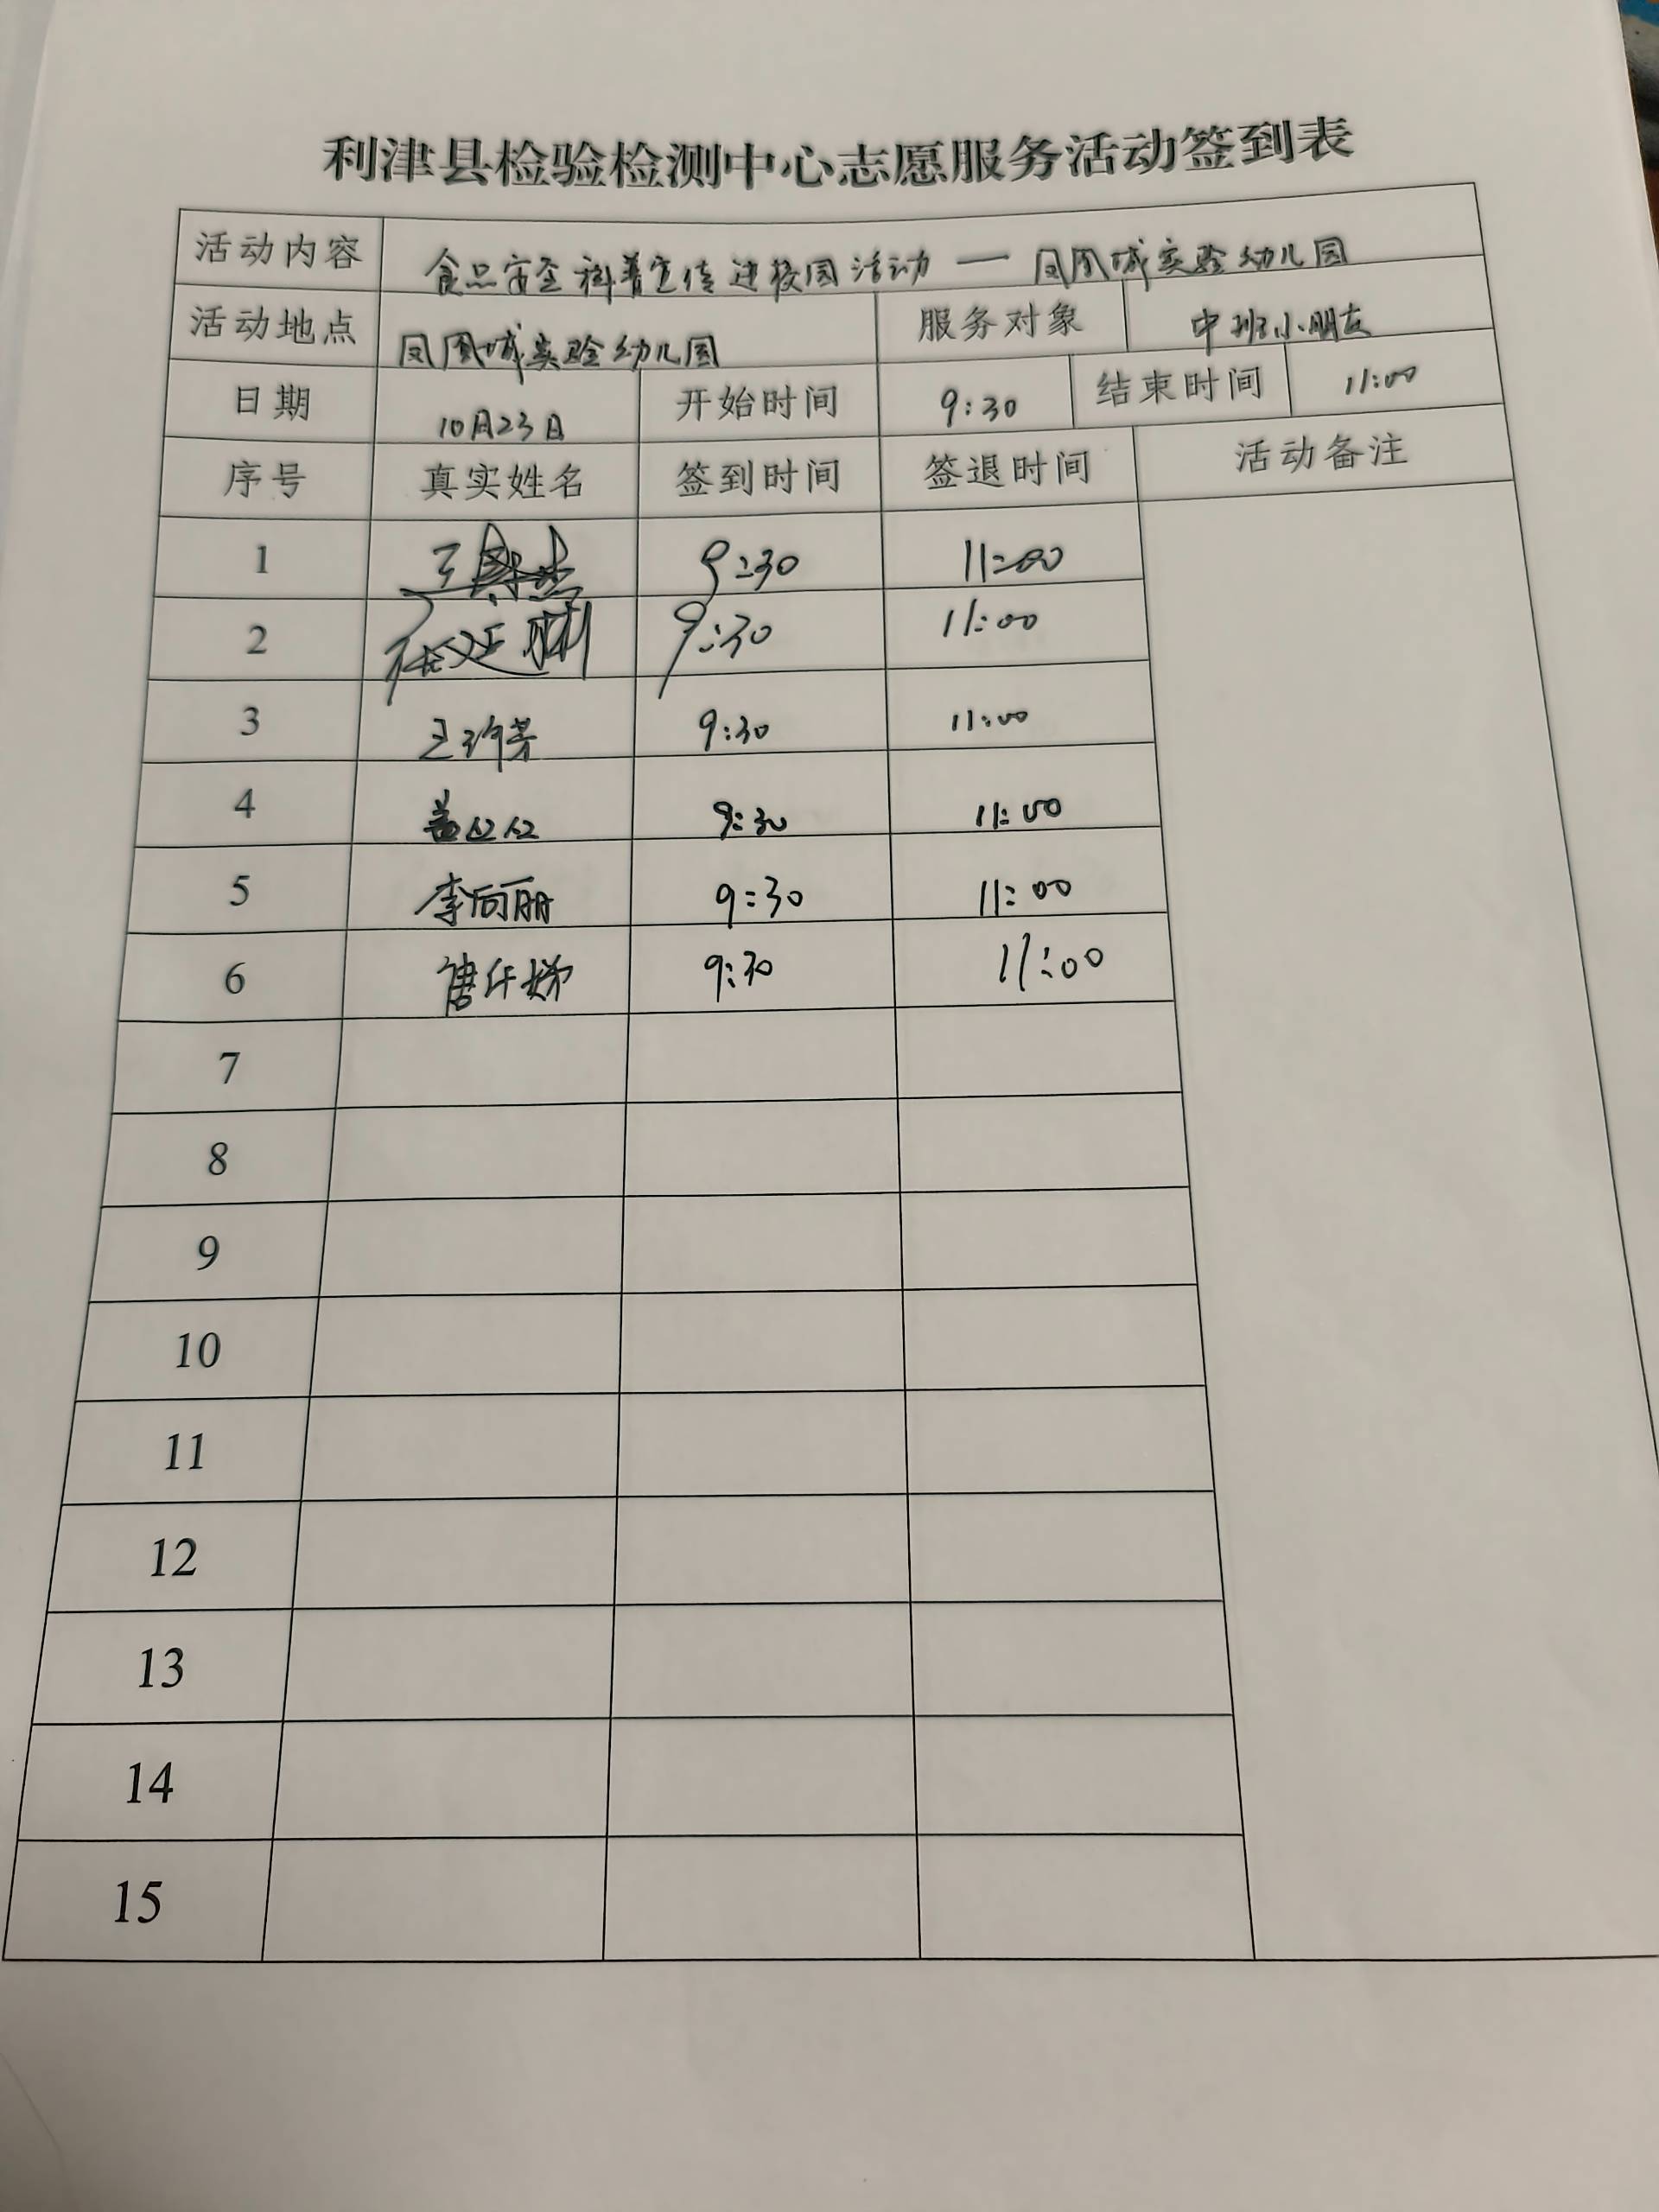 利津县检验检测中心志愿服务活动签到表
活动内容 食品安全科普宣传进校园活动 — 凤凰城实验幼儿园
活动地点 凤凰城实验幼儿园 服务对象 中班小朋友
日期 10月23日 开始时间 9:30 结束时间 11:00
序号 真实姓名 签到时间 签退时间 活动备注
1 9:30 11:00
2 9:30 11:00
3 9:30 11:00
4 9:30 11:00
5 李向丽 9:30 11:00
6 9:30 11:00
7
8
9
10
11
12
13
14
15